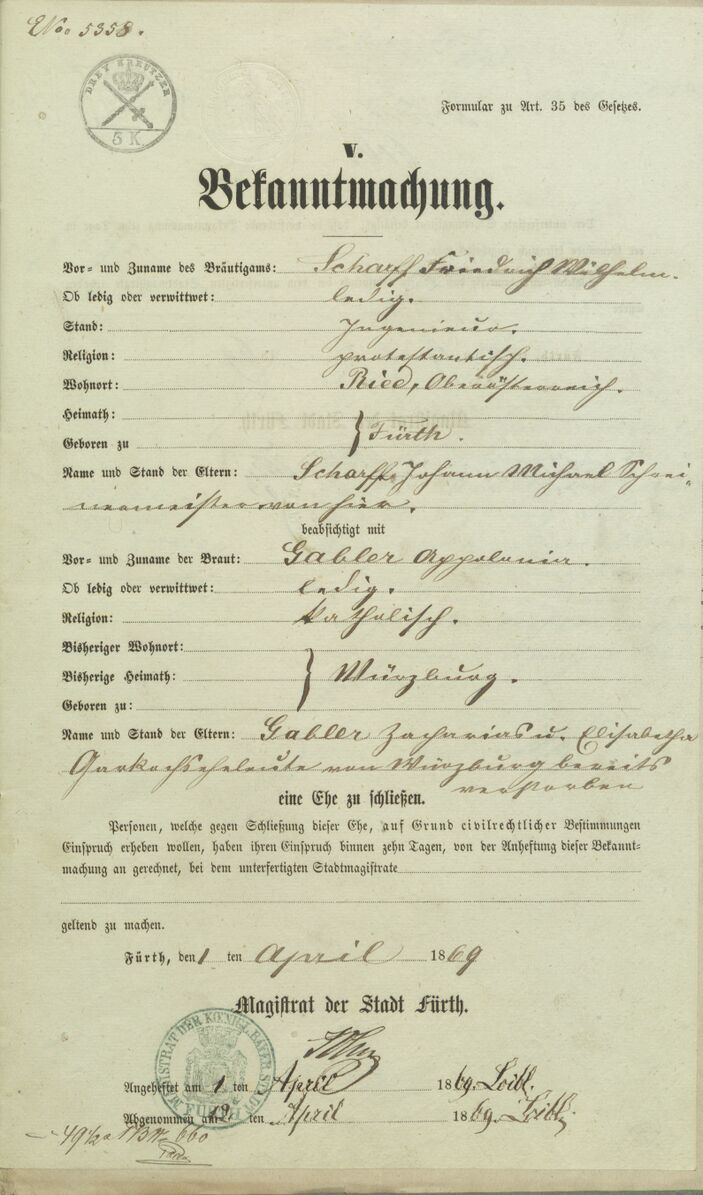 No 5358.
DREY KREUTZER
3 K
Formular zu Art. 35 des Gesetzes.
V.
Bekanntmachung.
Vor- und Zuname des Bräutigams: Scharff Friedrich Wilhelm.
Ob ledig oder verwittwet: ledig.
Stand: Ingenieur.
Religion: protestantisch.
Wohnort: Ried, Oberösterreich.
Heimath:
Geboren zu } Fürth.
Name und Stand der Eltern: Scharff Johann Michael Schrei-
nermeister von hier.
beabsichtigt mit
Vor- und Zuname der Braut: Gabler Appolonia.
Ob ledig oder verwittwet: ledig.
Religion: katholisch.
Bisheriger Wohnort:
Bisherige Heimath: } Würzburg.
Geboren zu:
Name und Stand der Eltern: Gabler Zacharias u. Elisabetha
Garkochseheleute von Würzburg bereits
verstorben
eine Ehe zu schließen.
Personen, welche gegen Schließung dieser Ehe, auf Grund civilrechtlicher Bestimmungen
Einspruch erheben wollen, haben ihren Einspruch binnen zehn Tagen, von der Anheftung dieser Bekannt-
machung an gerechnet, bei dem unterfertigten Stadtmagistrate
geltend zu machen.
Fürth, den 1 ten April 1869
Magistrat der Stadt Fürth.
MAGISTRAT DER KOENIGL. BAYER. STADT FÜRTH
Angeheftet am 1 ten April 1869. Loibl.
Abgenommen am 12 ten April 1869. Loibl.